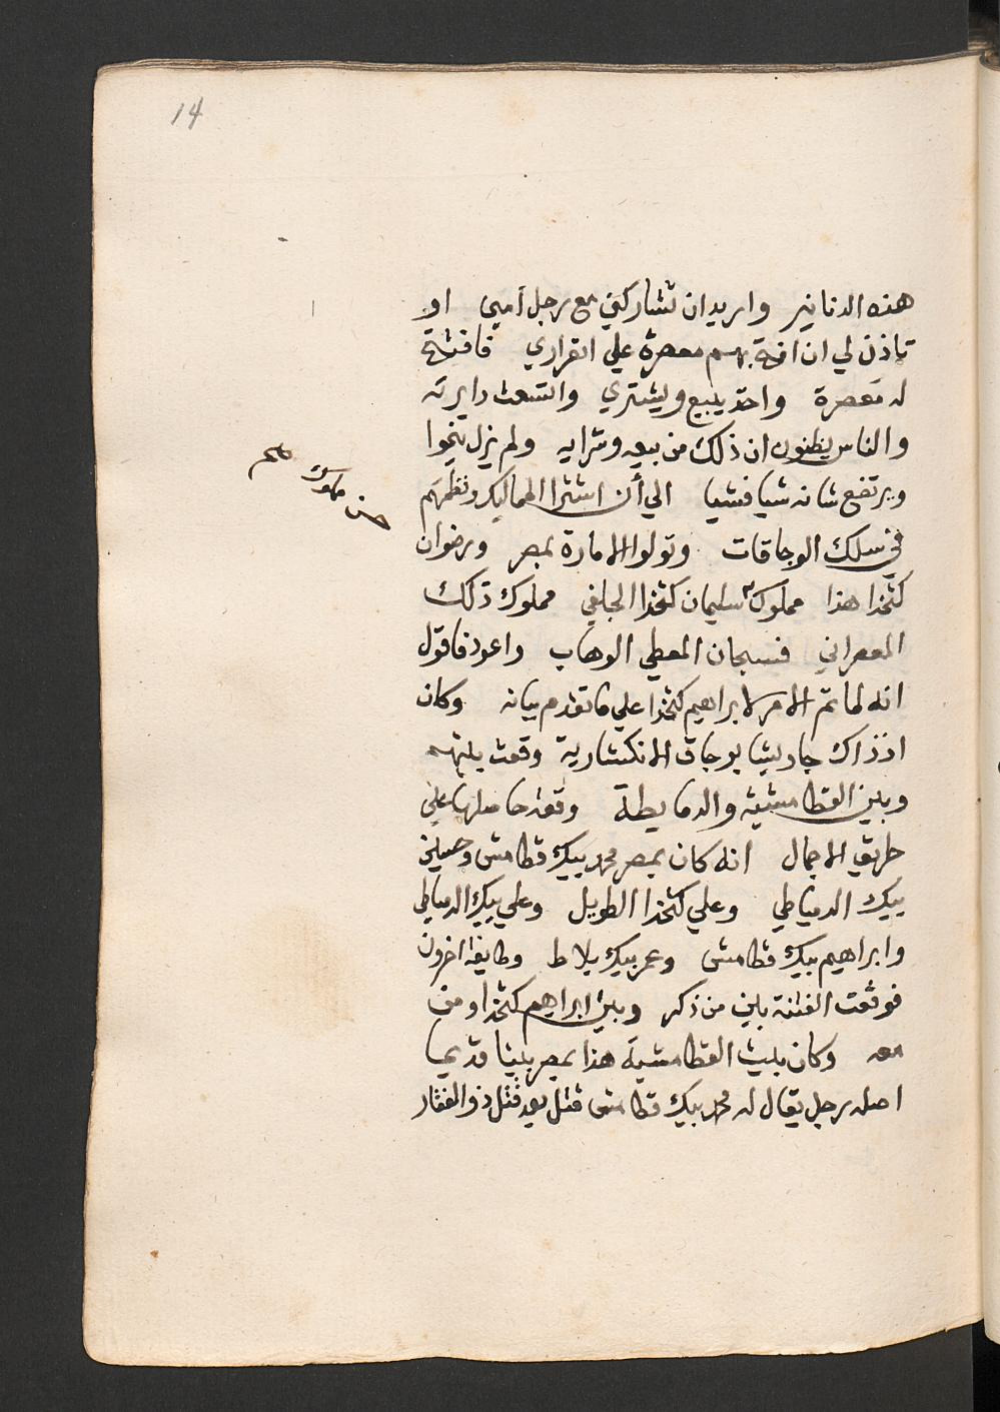 14
هذه الدنانير واريد ان تشاركني مع رجل امين او
تاذن لي ان افتح بهم معصرة علي انفرادي فافتتح
له معصرة واخذ يبيع ويشتري واتسعت دايرته
والناس يظنون ان ذلك من بيعه وشرايه ولم يزل ينموا
ويرتفع شانه شيا فشيا الي أن اشترا المماليك ونظمهم
في سلك الوجاقات وتولوا الامارة بمصر ورضوان
كتخدا هذا مملوك سليمان كتخدا الجلفي مملوك ذلك
المعصراني فسبحان المعطي الوهاب واعود فاقول
انه لما تم الامر لابراهيم كتخدا علي ما تقدم بيانه وكان
اذ ذاك جاويشا بوجاق الانكشارية وقعت بينهم
وبين القطامشية والدمايطة وقعة حاصلها علي
طريق الاجمال انه كان بمصر محمد بيك قطامش وحسين
بيك الدمياطي وعلي كتخدا الطويل وعلي بيك الدمياطي
وابراهيم بيك قطامش وعمر بيك بلاط وطايفة اخرون
فوقعت الفتنة بين من ذكر وبين ابراهيم كتخدا ومن
معه وكان بيت القطامشية هذا بمصر بيتا قديما
اصله رجل يقال له محمد بيك قطامش قتل بعد قتل ذو الفقار